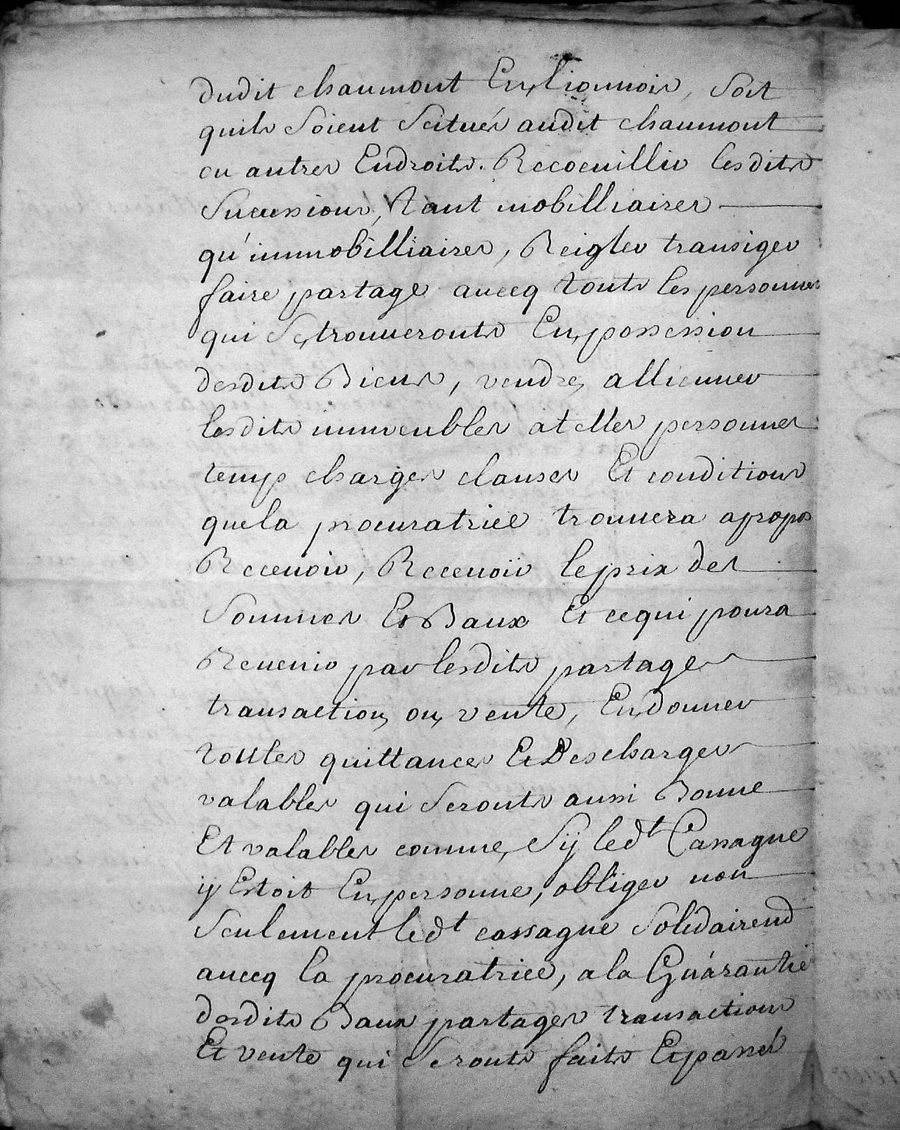 dudit chaumont En lionnois, soit
quils soient scitués audit chaumont
ou autres Endroits. Recoeuillir lesdits
successions, tant mobilliaires
qu'immobilliaires, Reigler transiger
faire partage avecq touts les personnes
qui se trouveronts En possession
desdits Biens, vendre, allienner
lesdits immeubles a telles personnes
temp charges clauses Et conditions
que la procuratrice trouvera apropos
Recevoir, Recevoir le prix des
sommes Et Baux Et ce qui poura
Revenir par lesdits partages
transaction, ou, vente, En donner
touttes quittances Et Descharges
valables qui seronts aussi Bonne
Et valables comme, sy led.t Cassagne
y Estoit En personne, obliger non
seulement led.t cassagne solidairend
avecq la procuratrice, a la Guárantie
desdits Baux partages transactions
Et vente qui seronts faits Et passés